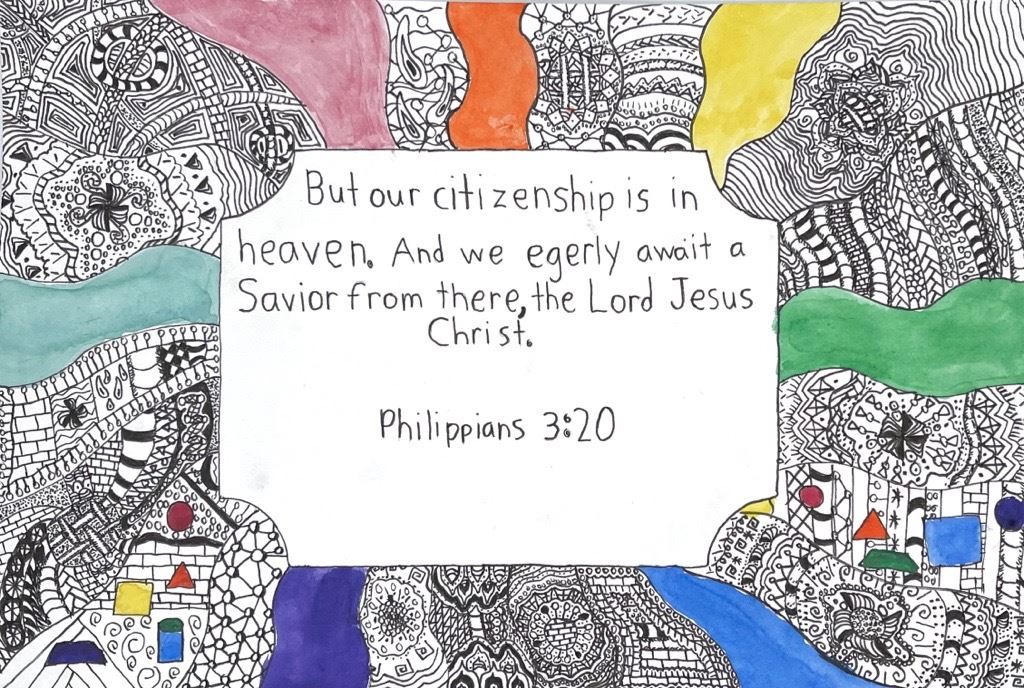 But our citizenship is in
heaven. And we egerly await a
Savior from there, the Lord Jesus
Christ.
Philippians 3:20